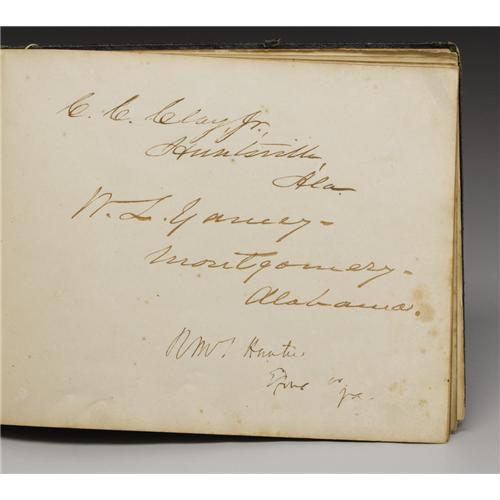 C. C. Clay, Jr.,
Huntsville,
Ala.
W. L. Yancey-
Montgomery-
Alabama.
R M T Hunter
Va.